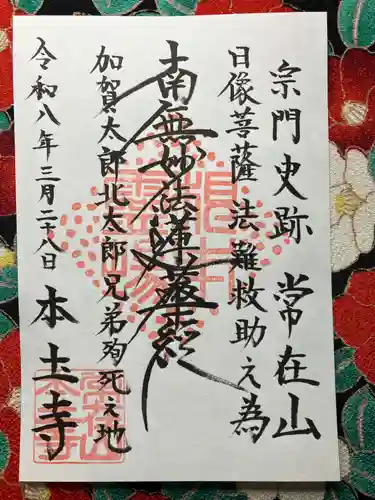 宗門史跡 常在山
日像菩薩法難救助之為
南無妙法蓮華経
加賀太郎北太郎兄弟殉死之地
令和八年三月二十八日 本土寺